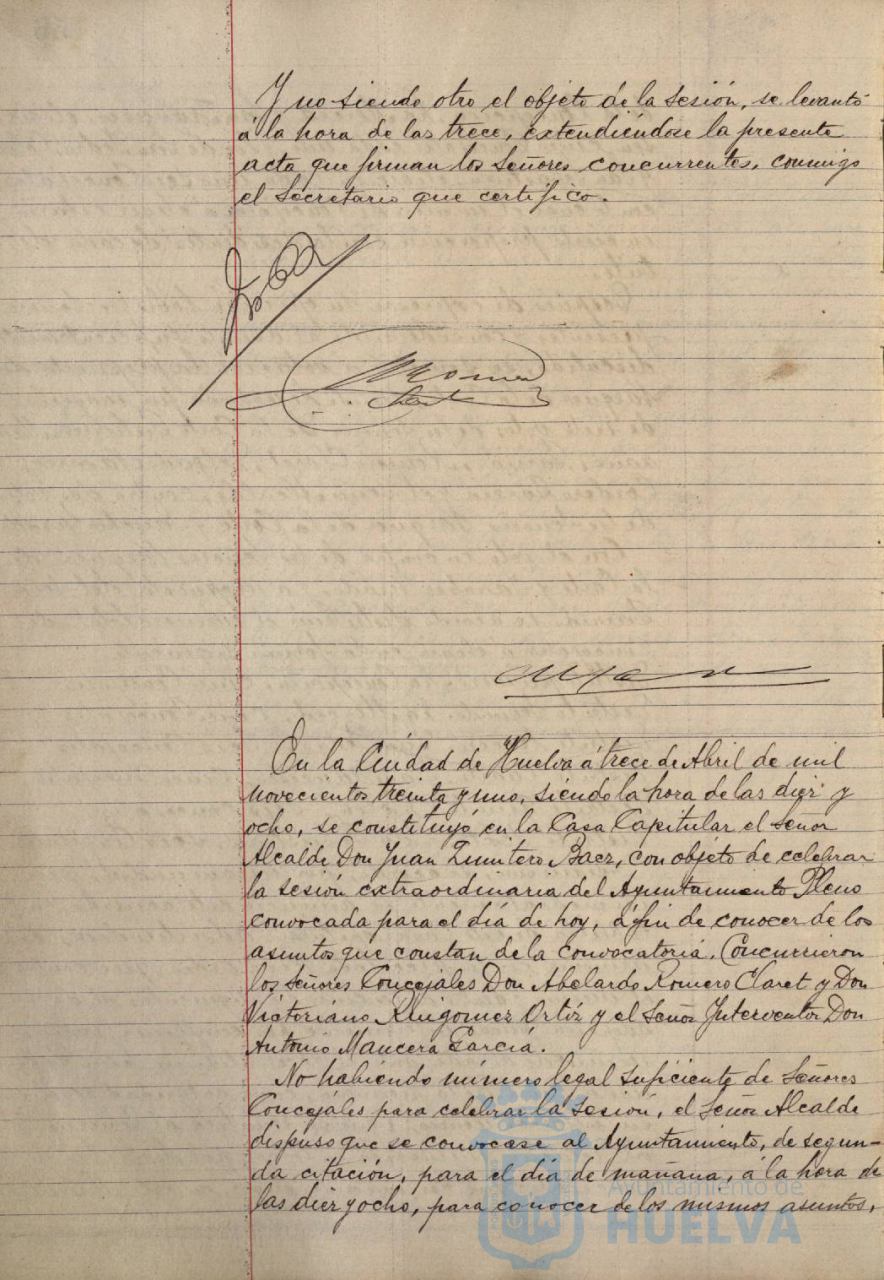 Y no siendo otro el objeto de la sesión, se levantó
á la hora de las trece, extendiéndose la presente
acta que firman los Señores concurrentes, conmigo
el Secretario que certifico.
En la Ciudad de Huelva á trece de Abril de mil
novecientos treinta y uno, siendo la hora de las diez y
ocho, se constituyó en la Casa Capitular el Señor
Alcalde Don Juan Quintero Baez, con objeto de celebrar
la sesión extraordinaria del Ayuntamiento Pleno
convocada para el día de hoy, á fin de conocer de los
asuntos que constan de la convocatoria. Concurrieron
los Señores Concejales Don Abelardo Romero Claret y Don
Victoriano Ruigomez Ortíz y el Señor Interventor Don
Antonio Mancera García.
No habiendo número legal suficiente de Señores
Concejales para celebrar la sesión, el Señor Alcalde
dispuso que se convocase al Ayuntamiento, de segun-
da citación, para el día de mañana, á la hora de
las diez y ocho, para conocer de los mismos asuntos,
Ayuntamiento de
HUELVA